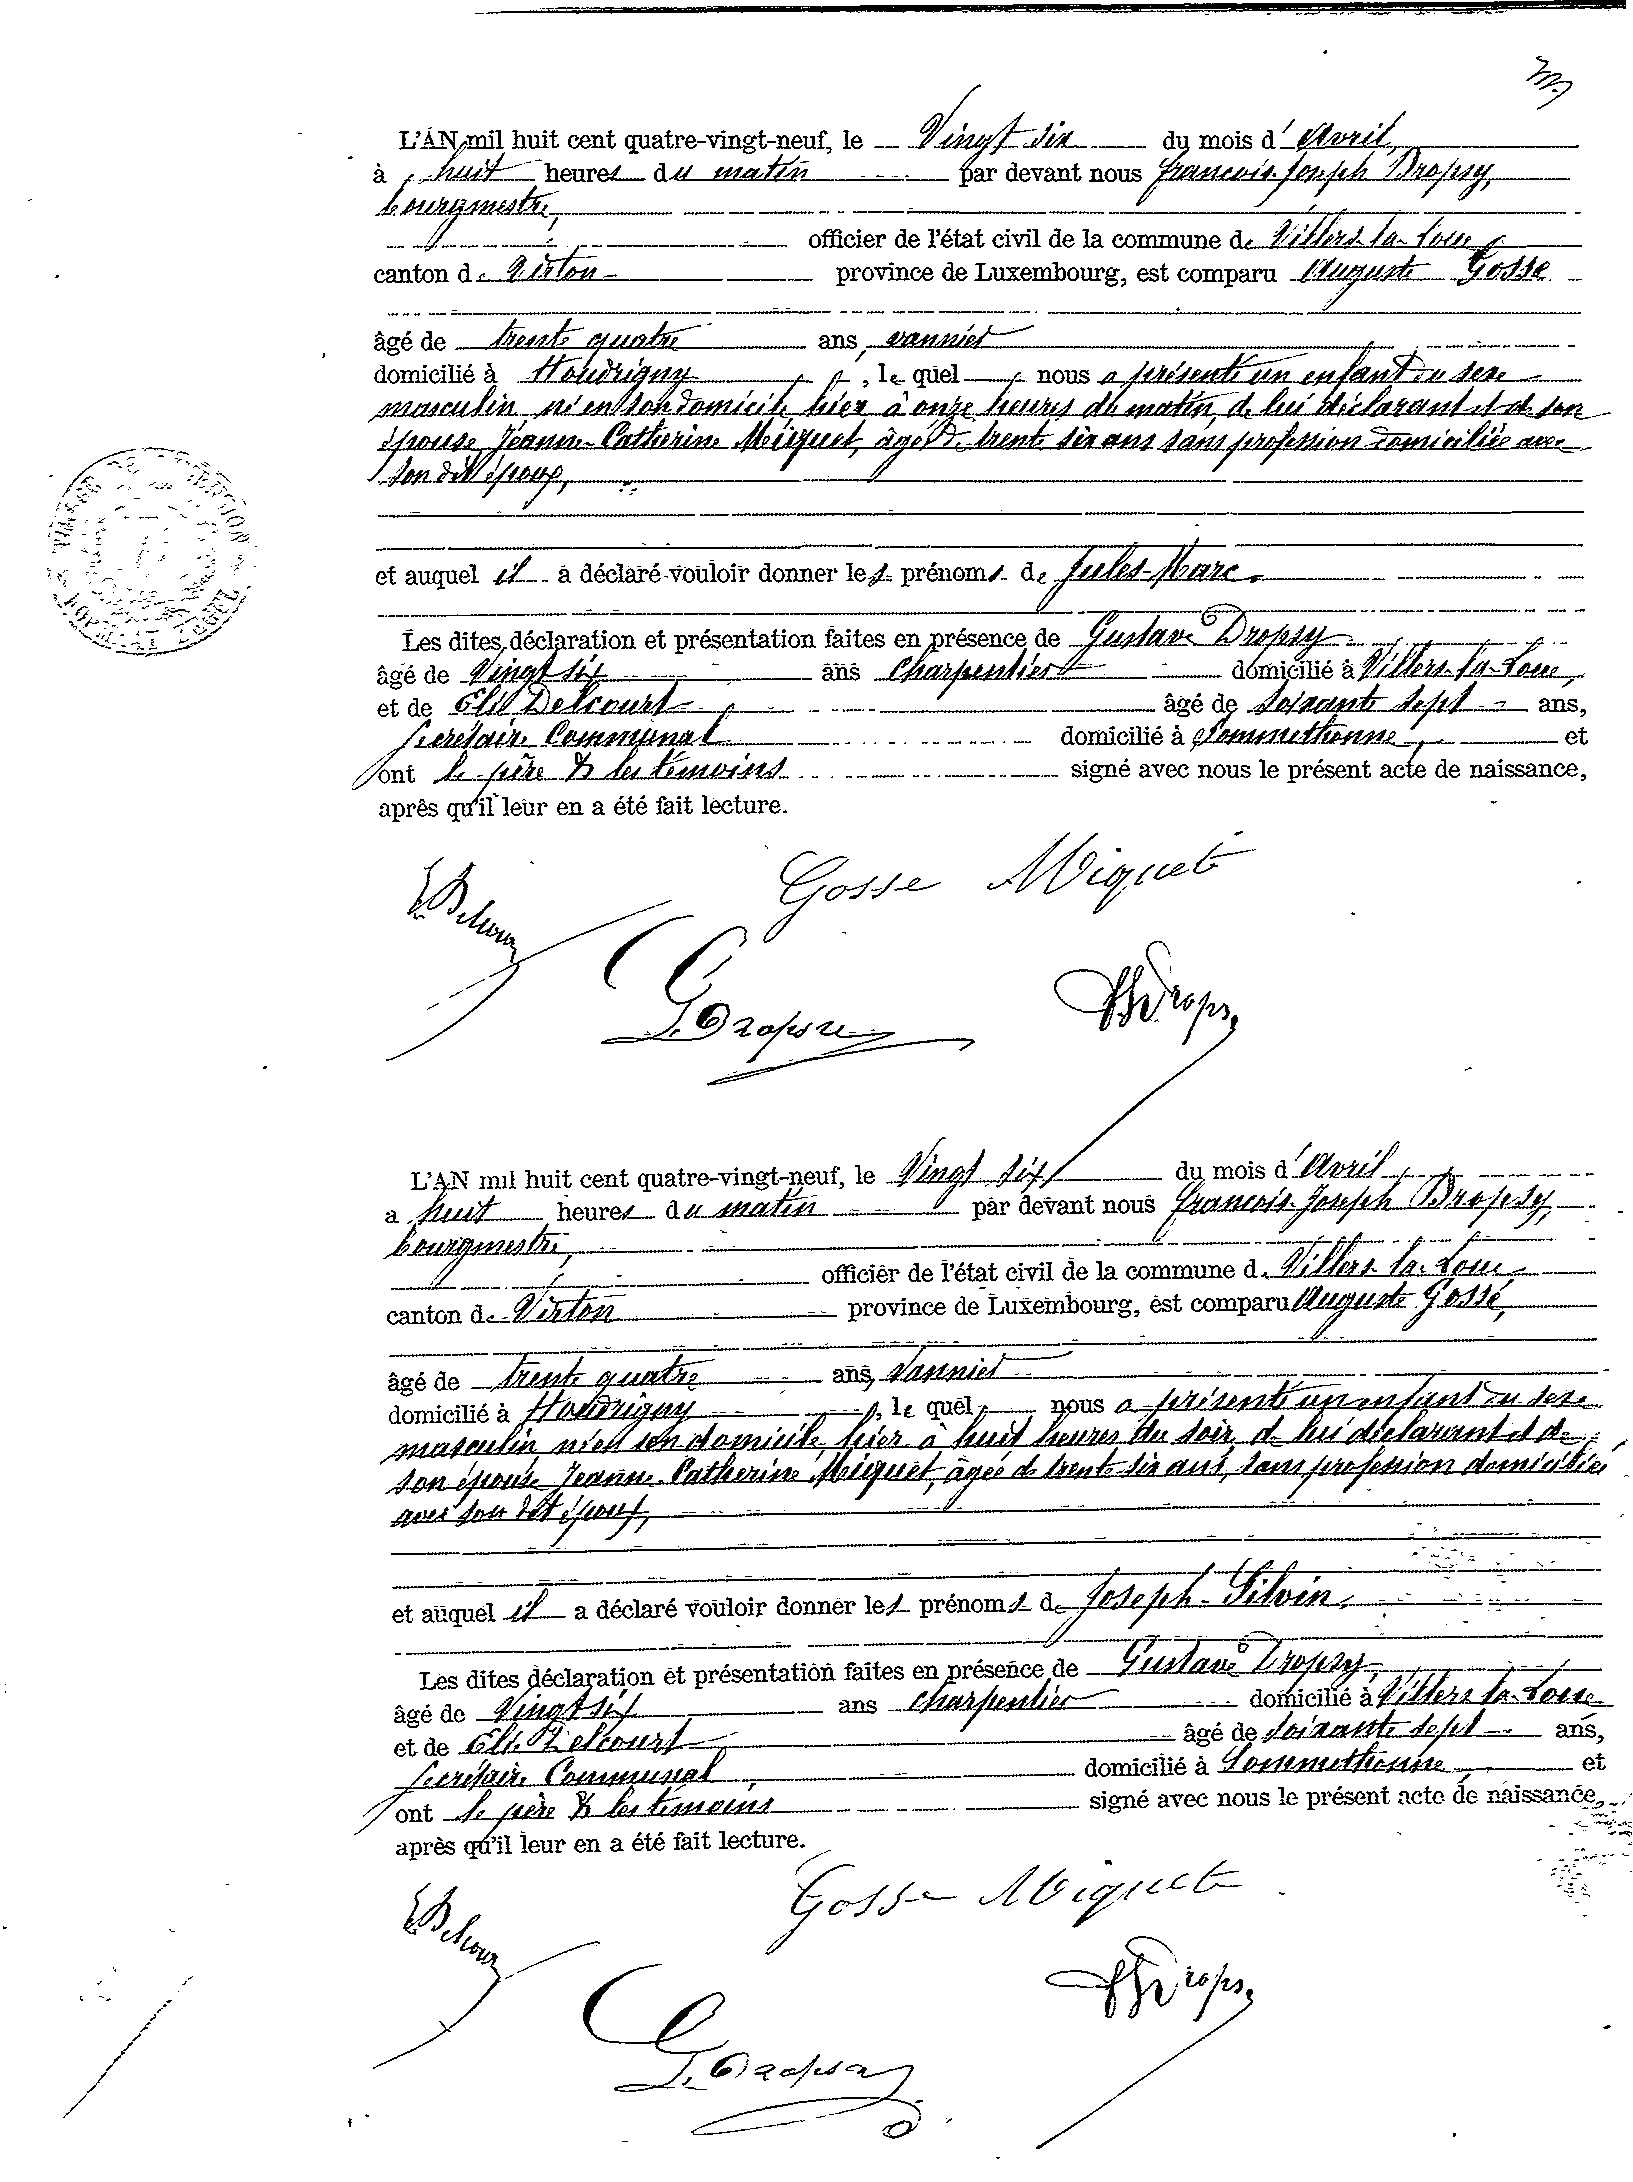 L'AN mil huit cent quatre-vingt-neuf, le Vingt six du mois d' Avril,
à huit heures du matin par devant nous francois-Joseph Dropsy,
bourgmestre,
officier de l'état civil de la commune de Villers-la-Loue,
canton de Virton province de Luxembourg, est comparu Auguste Gosse
âgé de trente quatre ans, vannier
domicilié à Houdrigny, le quel nous a présenté un enfant du sexe
masculin né en son domicile, hier à onze heures du matin, de lui déclarant et de son
épouse Jeanne-Catherine Miquet, âgée de trente six ans sans profession domiciliée avec
son dit époux,
et auquel il a déclaré vouloir donner les prénoms de Jules-Marc.
Les dites déclaration et présentation faites en présence de Gustave Dropsy
âgé de Vingt six ans charpentier domicilié à Villers-la-Loue,
et de Elie Delcourt âgé de soixante sept ans,
secrétaire Communal domicilié à Sommethonne, et
ont le père & les témoins signé avec nous le présent acte de naissance,
après qu'il leur en a été fait lecture.
Gosse Miquet
E Delcour
G. Dropsy
FJ Dropsy
L'AN mil huit cent quatre-vingt-neuf, le Vingt six du mois d' Avril,
a huit heures du matin par devant nous francois-Joseph Dropsy,
bourgmestre,
officier de l'état civil de la commune de Villers-la-Loue,
canton de Virton province de Luxembourg, est comparu Auguste Gosse,
âgé de trente quatre ans, Vannier
domicilié à Houdrigny, le quel nous a présenté un enfant du sexe
masculin né en son domicile, hier à huit heures du soir, de lui déclarant et de
son épouse Jeanne-Catherine Miquet, âgée de trente six ans, sans profession domiciliée
avec son dit époux,
et auquel il a déclaré vouloir donner les prénoms de Joseph-Silvin.
Les dites déclaration et présentation faites en présence de Gustave Dropsy,
âgé de Vingt six ans charpentier domicilié à Villers-la-Loue
et de Elie Delcourt âgé de soixante sept ans,
secrétaire Communal, domicilié à Sommethonne, et
ont le père & les témoins signé avec nous le présent acte de naissance,
après qu'il leur en a été fait lecture.
Gosse Miquet
E Delcour
FJ Dropsy
G. Dropsy